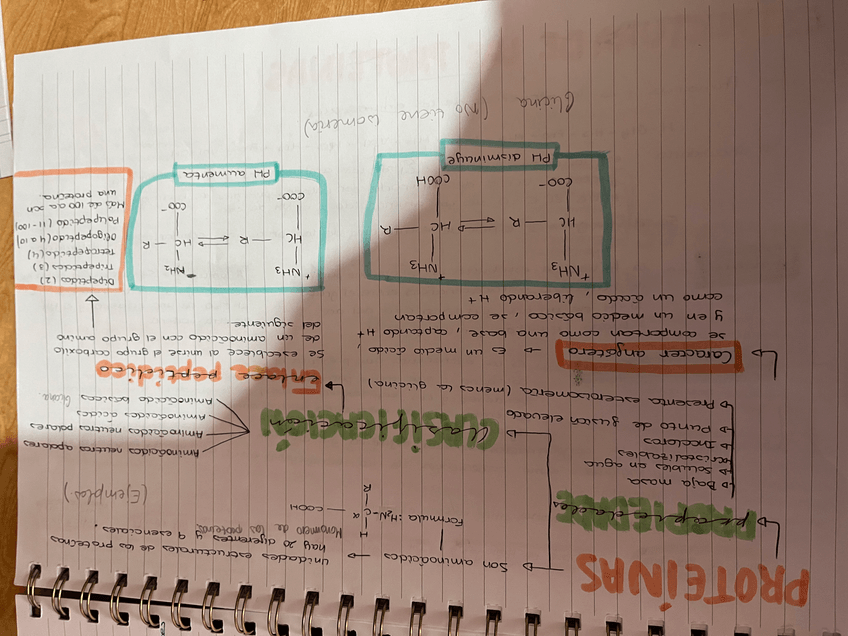 PROTEÍNAS
→ Son aminoácidos → unidades estructurales de las proteínas
hay 20 diferentes y 9 esenciales.
Monomero de las proteínas
Formula: H₂N-C α — COOH
H
R
(Ejemplos)
→ propiedades
PROPIEDADES
→ Baja masa
→ solubles an agua
→ cristalizables
→ Incoloros
→ De Punto de fusión elevado
→ Presenta estereoisomería (menos la glicina)
→ Clasificación
CLASIFICACIÓN
Aminoácidos neutros apolares
Aminoácidos neutros polares
Aminoácidos ácidos
Aminoácido básicos
→ Caracter anfótero → Es un medio ácido,
se comportan como una base, captando H+
y en un medio básico, se comportan
como un ácido, liberando H+
→ enlace peptídico
Se establece al unirse el grupo carboxilo
de un aminoácido con el grupo amino
del siguiente.
+NH3
HC — R
COO-
+NH3
HC — R
COOH
PH disminuye
+NH3
HC — R
COO-
NH2
HC — R
COO-
PH aumenta
Dipeptidos (2)
Tripeptidos (3)
Tetrapeptido (4)
Oligopeptido (4 a 10)
Polipeptido (11-100)
Más de 100 aa son
una proteína.
Glicina (No tiene isomería)